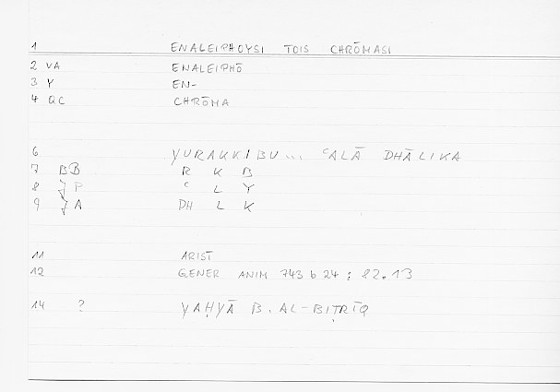 1 ENALEIPHOYSI TOIS CHRŌMASI
2 VA ENALEIPHŌ
3 Y EN-
4 QC CHRŌMA
6 YURAKKIBU... ʿALĀ DHĀLIKA
7 BB R K B
8 JP ʿ L Y
9 JA DH L K
11 ARIST
12 GENER ANIM 743 b 24 ; 82.13
14 ? YAḤYĀ B. AL-BIṬRĪQ